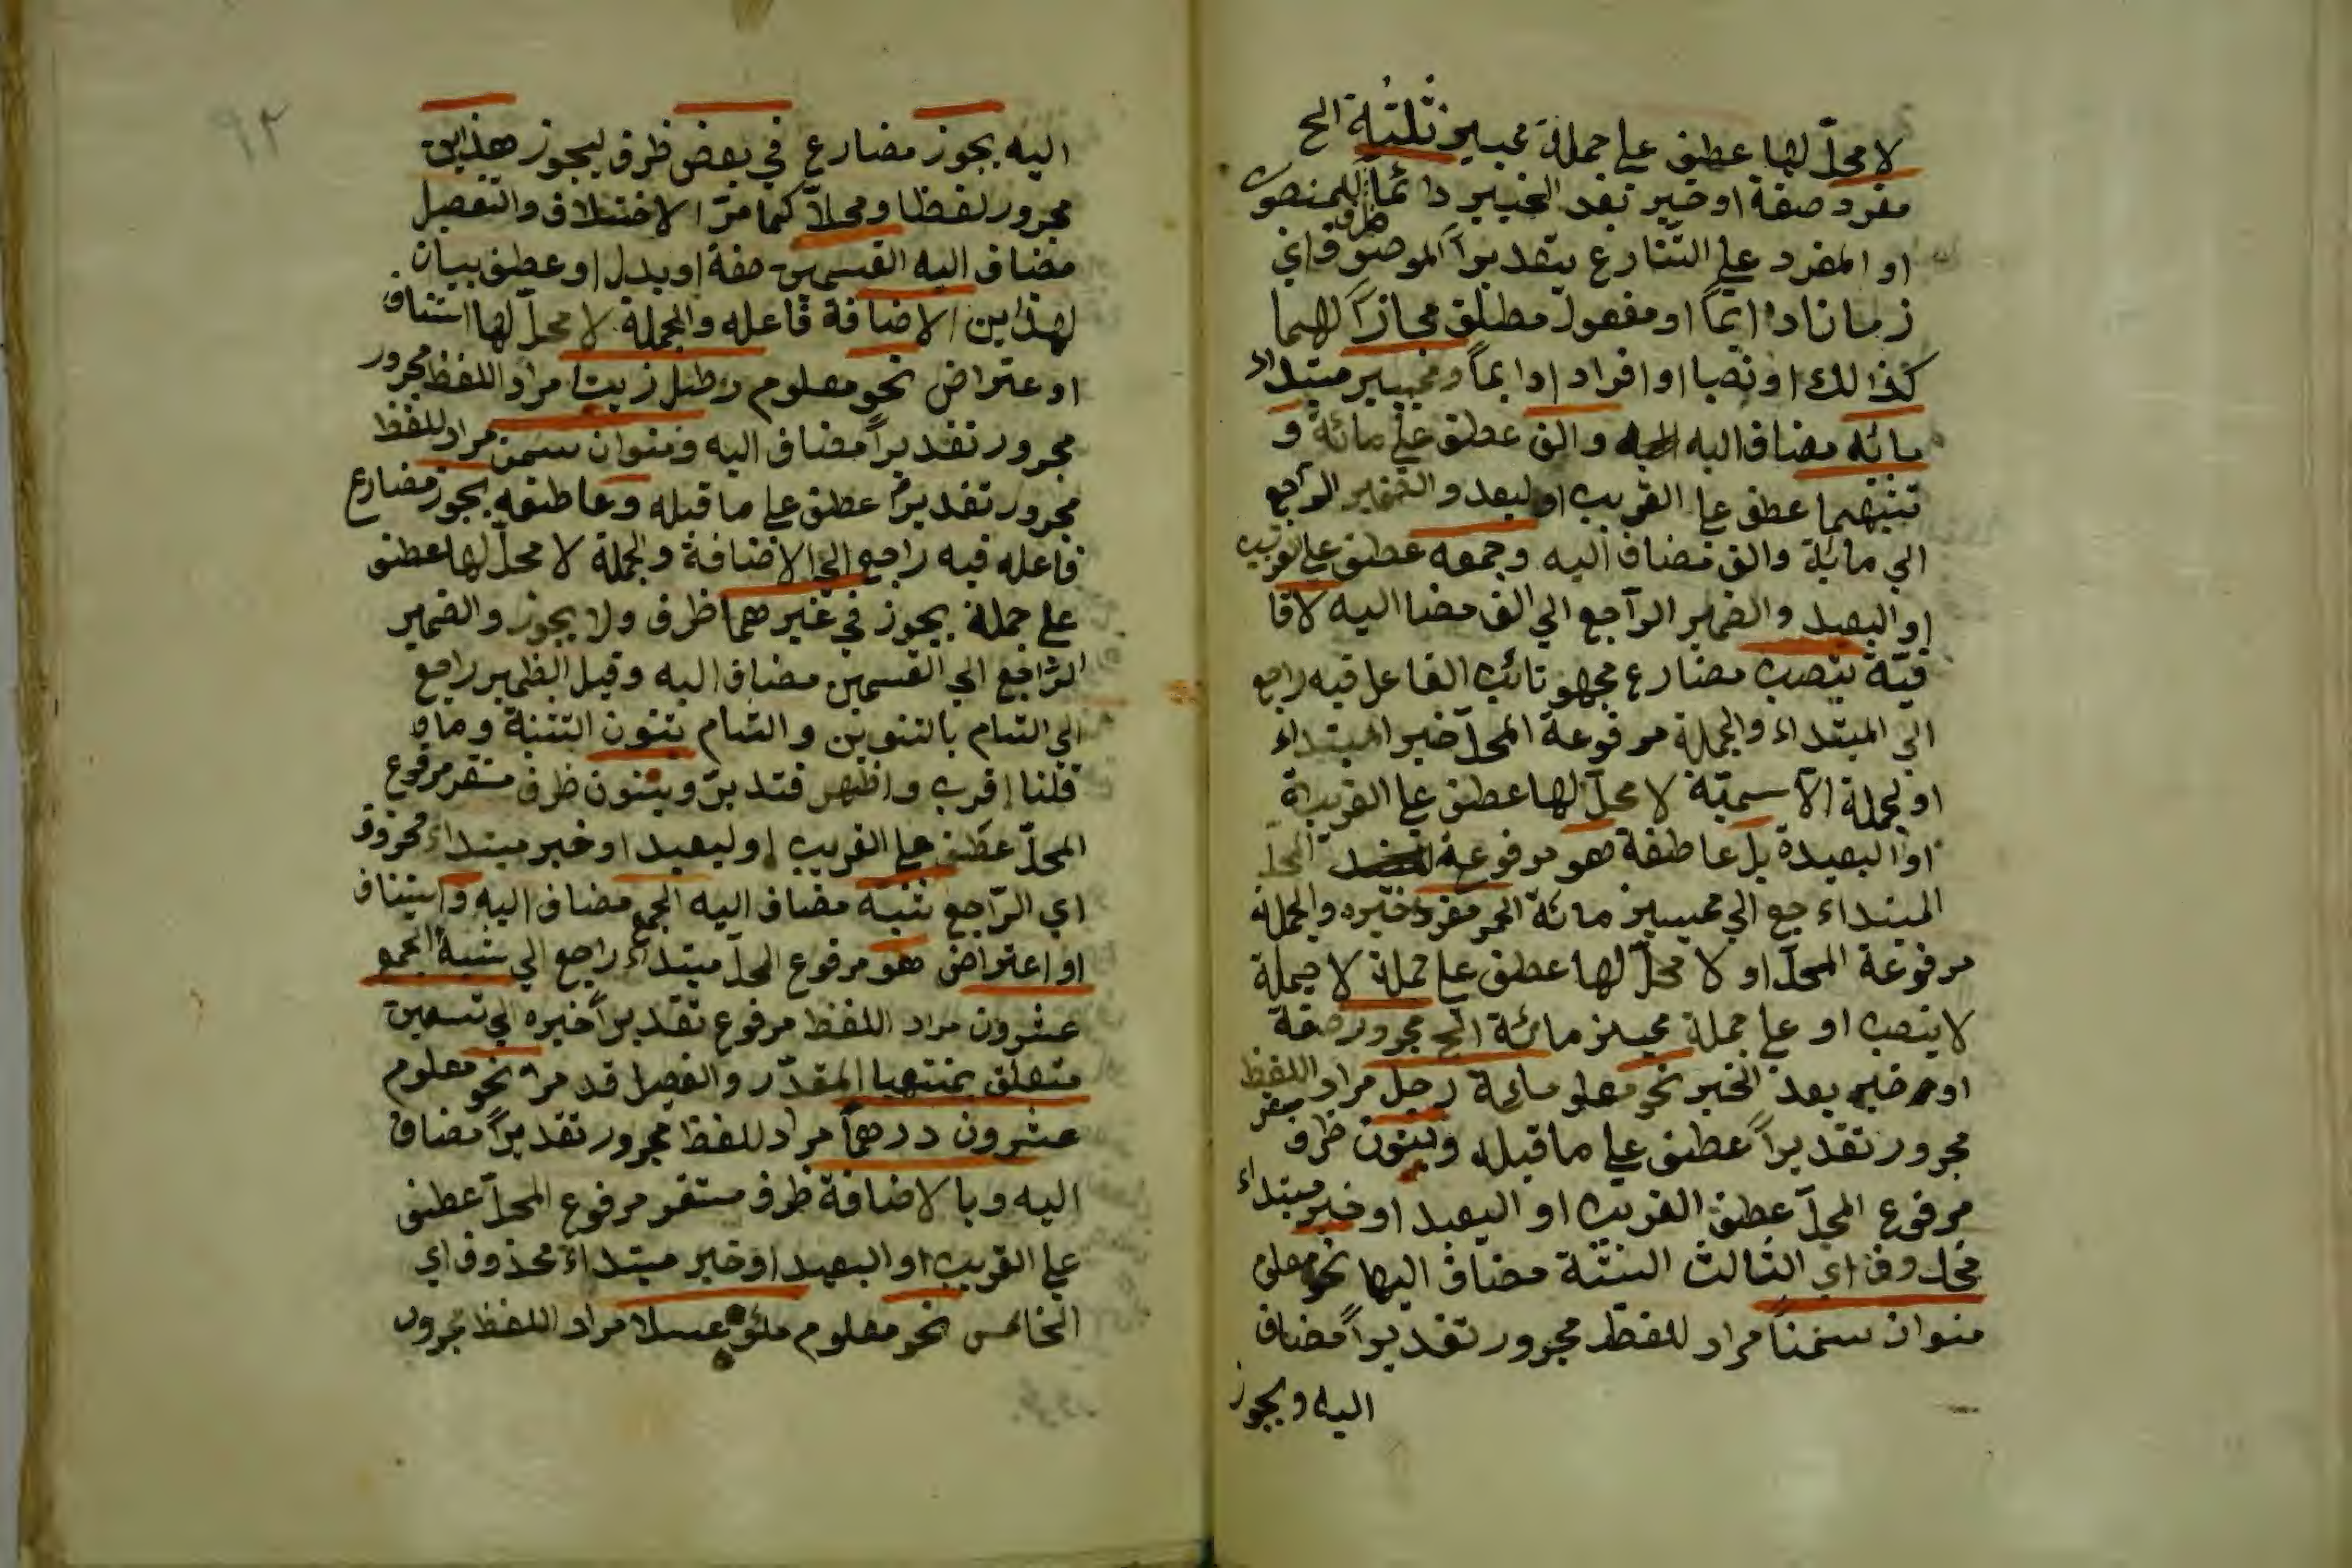 لا محلّ لها عطف على جملة مميز ثلثة الح
مفرد صفة او خبر بعد الخبر دائماً للمنصوب
او المفرد على التنارع بتقديرا لموصوف اي
زمانا دائماً او مفعول مطلق مجازاً لهما
كذالك او نصبا او افراد ادايماً ومميز مبتداء
مائه مضاف اليه والف عطف على مائة و
تثنيهما عطف على القريب او لبعد والضمير الراجع
الي مائة والف مضاف اليه وجمعه عطف على القريب
او البعيد والضمير الراجع الي الف مضا اليه لا قا
فيّة ينصب مضارع مجهو نائب الفاعل فيه راجع
الي المبتداء والجملة مرفوعة المحلّ خبر المبتداء
او لجملة الاسميّة لا محلّ لها عطف على القريبة
او البعيدة بل عاطفة هو مرفوعة المحلّ
المبتداء جع الي مميز مائة الح مفرد خبره والجملة
مرفوعة المحلّ او لا محلّ لها عطف على جملة لا جملة
لا ينصب او على جملة مميز مائة الح مجرور صفة
او خبر بعد الخبر نحو معلو مائة رجل مراد اللفظ
مجرور تقديراً عطف على ما قبله وبنون ظرف مستقر
مرفوع المحلّ عطف القريب او البعيد او خبر مبتداء
محذوف اي الثالث الثنثة مضاف اليها نحو معلوم
منوان سمناً مراد للفظ مجرور تقديراً مضاف
اليه ويجوز
٩٢
اليه يجوز مضارع في بعض ظرف ليجوز هذاين
مجرور لفظا ومحلاّ كما مرّ الاختلاف والتفصيل
مضاف اليه القسمين صفة او بدل او عطف بيان
لهذاين الاضافة فاعله والجملة لا محلّ لها استئناف
او عتراض نحو معلوم رطل زيت مراد اللفظ مجرور
مجرور تقديراً مضاف اليه ومنوان سمن مراد للفظ
مجرور تقديراً عطف على ما قبله وعاطفه يجوز مضارع
فاعله فيه راجع الي الاضافة والجملة لا محلّ لها عطف
على جملة يجوز في غيرهما ظرف ولا يجوز والضمير
الراجع الي القسمين مضاف اليه وقيل الظمير راجع
الي التام بالتنوين والتام بنون التثنية وما
قلنا اقرب واظهر فتدبرّ وبنون ظرف مستقر مرفوع
المحلّ عطف على القريب او لبعيد او خبر مبتداء محذوف
اي الرّاجع شبه مضاف اليه الجمع مضاف اليه واستئناف
او اعتراض هو مرفوع المحلّ مبتداء راجع الي شبه الجمع
عشرون مراد اللفظ مرفوع تقديراً خبره الي تسعين
متعلق بمنتهيا المقدّر والفصل قد مرّ نحو معلوم
عشرون درهماً مراد للفظ مجرور تقديراً مضاف
اليه وبالاضافة ظرف مستقر مرفوع المحلّ عطف
على القريب او البعيد او خبر مبتداء محذوف اي
الخامس نحو معلوم ملؤه عسلا مراد اللفظ مجرور